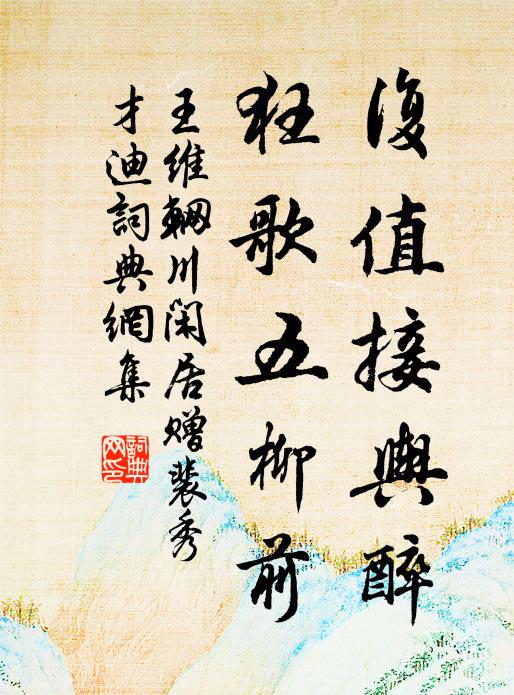 復值接輿醉
狂歌五柳前
王維輞川閑居贈裴秀
才迪詞典網集
詞典
网印